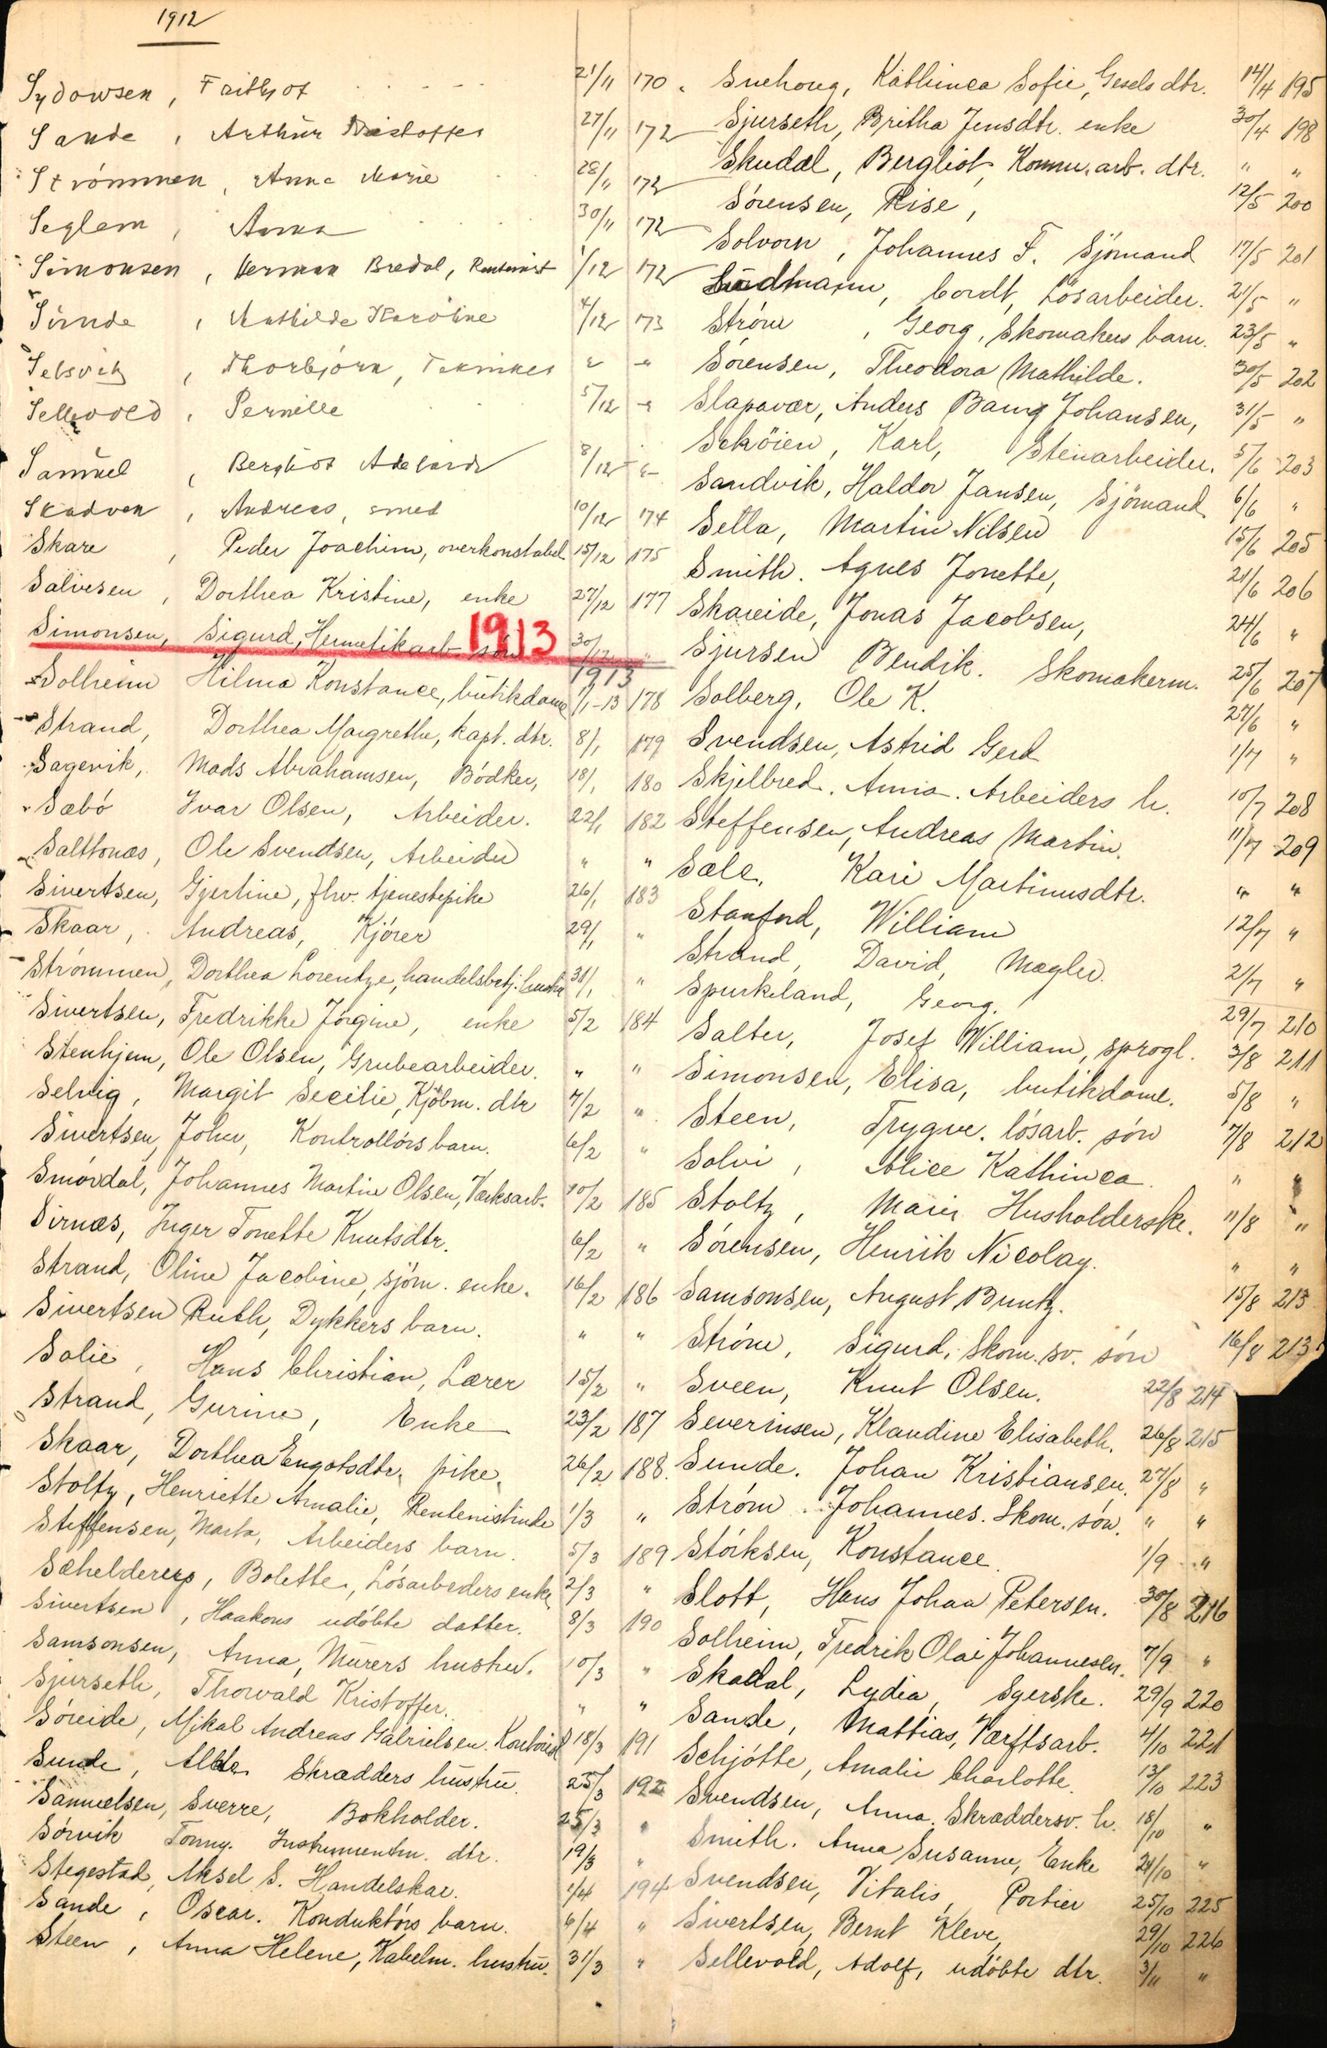 1912
Sydowsen, Frithjof 21/11 170
Sande, Arthur Kristoffer 27/11 172
Strömmen, Anna Marie 28/11 172
Seglem, Anna 30/11 172
Simonsen, Herman Bredal, Rentenist 1/12 172
Sunde, Mathilde Karoline 4/12 173
Selsvik, Thorbjörn, Tekniker " "
Sellevold, Pernille 5/12 "
Samuel, Bergliot Adelaide 8/12 "
Skadven, Andreas, smed 10/12 174
Skare, Peder Joachim, overkonstabel 15/12 175
Salvesen, Dorthea Kristine, enke 27/12 177
Simonsen, Sigurd, Hermetikarb. sön 30/12 "
1913
1913
Solheim Hilma Konstance, butikdame 1/1-13 178
Strand, Dorthea Margrethe, kapt. dtr. 8/1 179
Sagevik, Mads Abrahamsen, Bödker, 18/1 180
Sæbö Ivar Olsen, Arbeider. 22/1 182
Salttonæs, Ole Svendsen, Arbeider " "
Sivertsen, Gjertine, fhv. tjenestepike 26/1 183
Skaar, Andreas, Kjörer 29/1 "
Strömmen, Dorthea Lorentze, handelsbetj. hustru 31/1 "
Sivertsen, Fredrikke Jörgine, enke 5/2 184
Stenhjem, Ole Olsen, Grubearbeider. " "
Selvig, Margit Secilie, Kjöbm. dtr 7/2 "
Sivertsen, John, Kontrollörs barn. 6/2 "
Smördal, Johannes Martin Olsen, Værksarb. 10/2 185
Sirnæs, Inger Tonette Knutsdtr. 6/2 "
Strand, Oline Jacobine, sjöm. enke. 16/2 186
Sivertsen Ruth, Dykkers barn. " "
Solie, Hans Christian, Lærer 15/2 "
Strand, Gurine, Enke 23/2 187
Skaar, Dorthea Engotsdtr. pike. 26/2 188.
Stoltz, Henriette Amalie, Rentenistinde 1/3 "
Steffensen, Marta, Arbeiders barn. 5/3 189
Sæheldereie, Bolette, Lösarbeders enke 2/3 "
Sivertsen, Haakons udöbte datter. 8/3 190
Samsonsen, Anna, Murers hustru. 10/3 "
Sjurseth, Thorvald Kristoffer. " "
Söreide, Mikal Andreas Gabrielsen. Kontorist 18/3 191
Sunde, Alette Skrædders hustru 25/3 192
Samuelsen, Sverre, Bokholder. 25/3 "
Sörvik Tonny. Instrumentm. dtr. 19/3 "
Stegestad, Aksel S. Handelskar. 1/4 194
Sande, Oscar. Konduktörs barn. 6/4 "
Steen, Anna Helene, Kabelm. hustru. 31/3 "
Snehoug, Kathinca Sofie, Gesels dtr. 14/4 195
Sjurseth, Britha Jensdtr. enke 30/4 198
Skudal, Bergliot, Komm. arb. dtr. " "
Sörensen, Rise, 12/5 200
Solvorn, Johannes F. Sjömand 17/5 201
Südtmann, Cordt, Lösarbeider. 21/5 "
Ström, Georg, Skomakers barn. 23/5 "
Sörensen, Theodora Mathilde. 30/5 202
Slapavær, Anders Bang Johansen, 31/5 "
Schöien, Karl, Stenarbeider. 5/6 203
Sandvik, Haldor Jansen, Sjömand 6/6 "
Sella, Martin Nilsen 15/6 205
Smith. Agnes Jonette, 21/6 206
Skareide, Jonas Jacobsen, 24/6 "
Sjursen Bendik. Skomakerm. 25/6 207
Solberg, Ole K. 27/6 "
Svendsen, Astrid Gerd 1/7 "
Skjelbred. Anna. Arbeiders h. 10/7 208
Steffensen, Andreas Martin. 11/7 209
Sæle, Kari Martinusdtr. " "
Stanford, William 12/7 "
Strand, David, Mægler 21/7 "
Spurkeland, Georg. 29/7 210
Salter, Josef William, sprogl. 3/8 211
Simonsen, Elisa, butikdame. 5/8 "
Steen, Trygve. lösarb. sön 7/8 212
Solvi, Alice Kathinca. " "
Stoltz, Marie Husholderske. 11/8 "
Sörensen, Henrik Nicolay. " "
Samsonsen, August Buntz. 15/8 213
Ström, Sigurd, Skom. sv. sön 16/8 213
Sveen, Knut Olsen. 22/8 214
Severinsen, Klaudine Elisabeth. 26/8 215
Sunde. Johan Kristiansen. 27/8 "
Ström. Johannes. Skom. sön. " "
Störksen, Konstance 1/9 "
Slott, Hans Johan Petersen. 30/8 216
Solheim, Fredrik Olai Johannesen. 7/9 "
Skadal, Lydia, Syerske. 29/9 220
Sande, Mattias, Værftsarb. 4/10 221
Schjötte, Amalie Charlotte. 13/10 223
Svendsen, Anna. Skræddersv. h. 18/10 "
Smith. Anna Susanne, Enke 24/10 "
Svendsen, Vitalis, Portier 25/10 225
Sivertsen, Bernt Kleve, 29/10 226
Sellevold, Adolf, udöbte dtr. 3/11 "